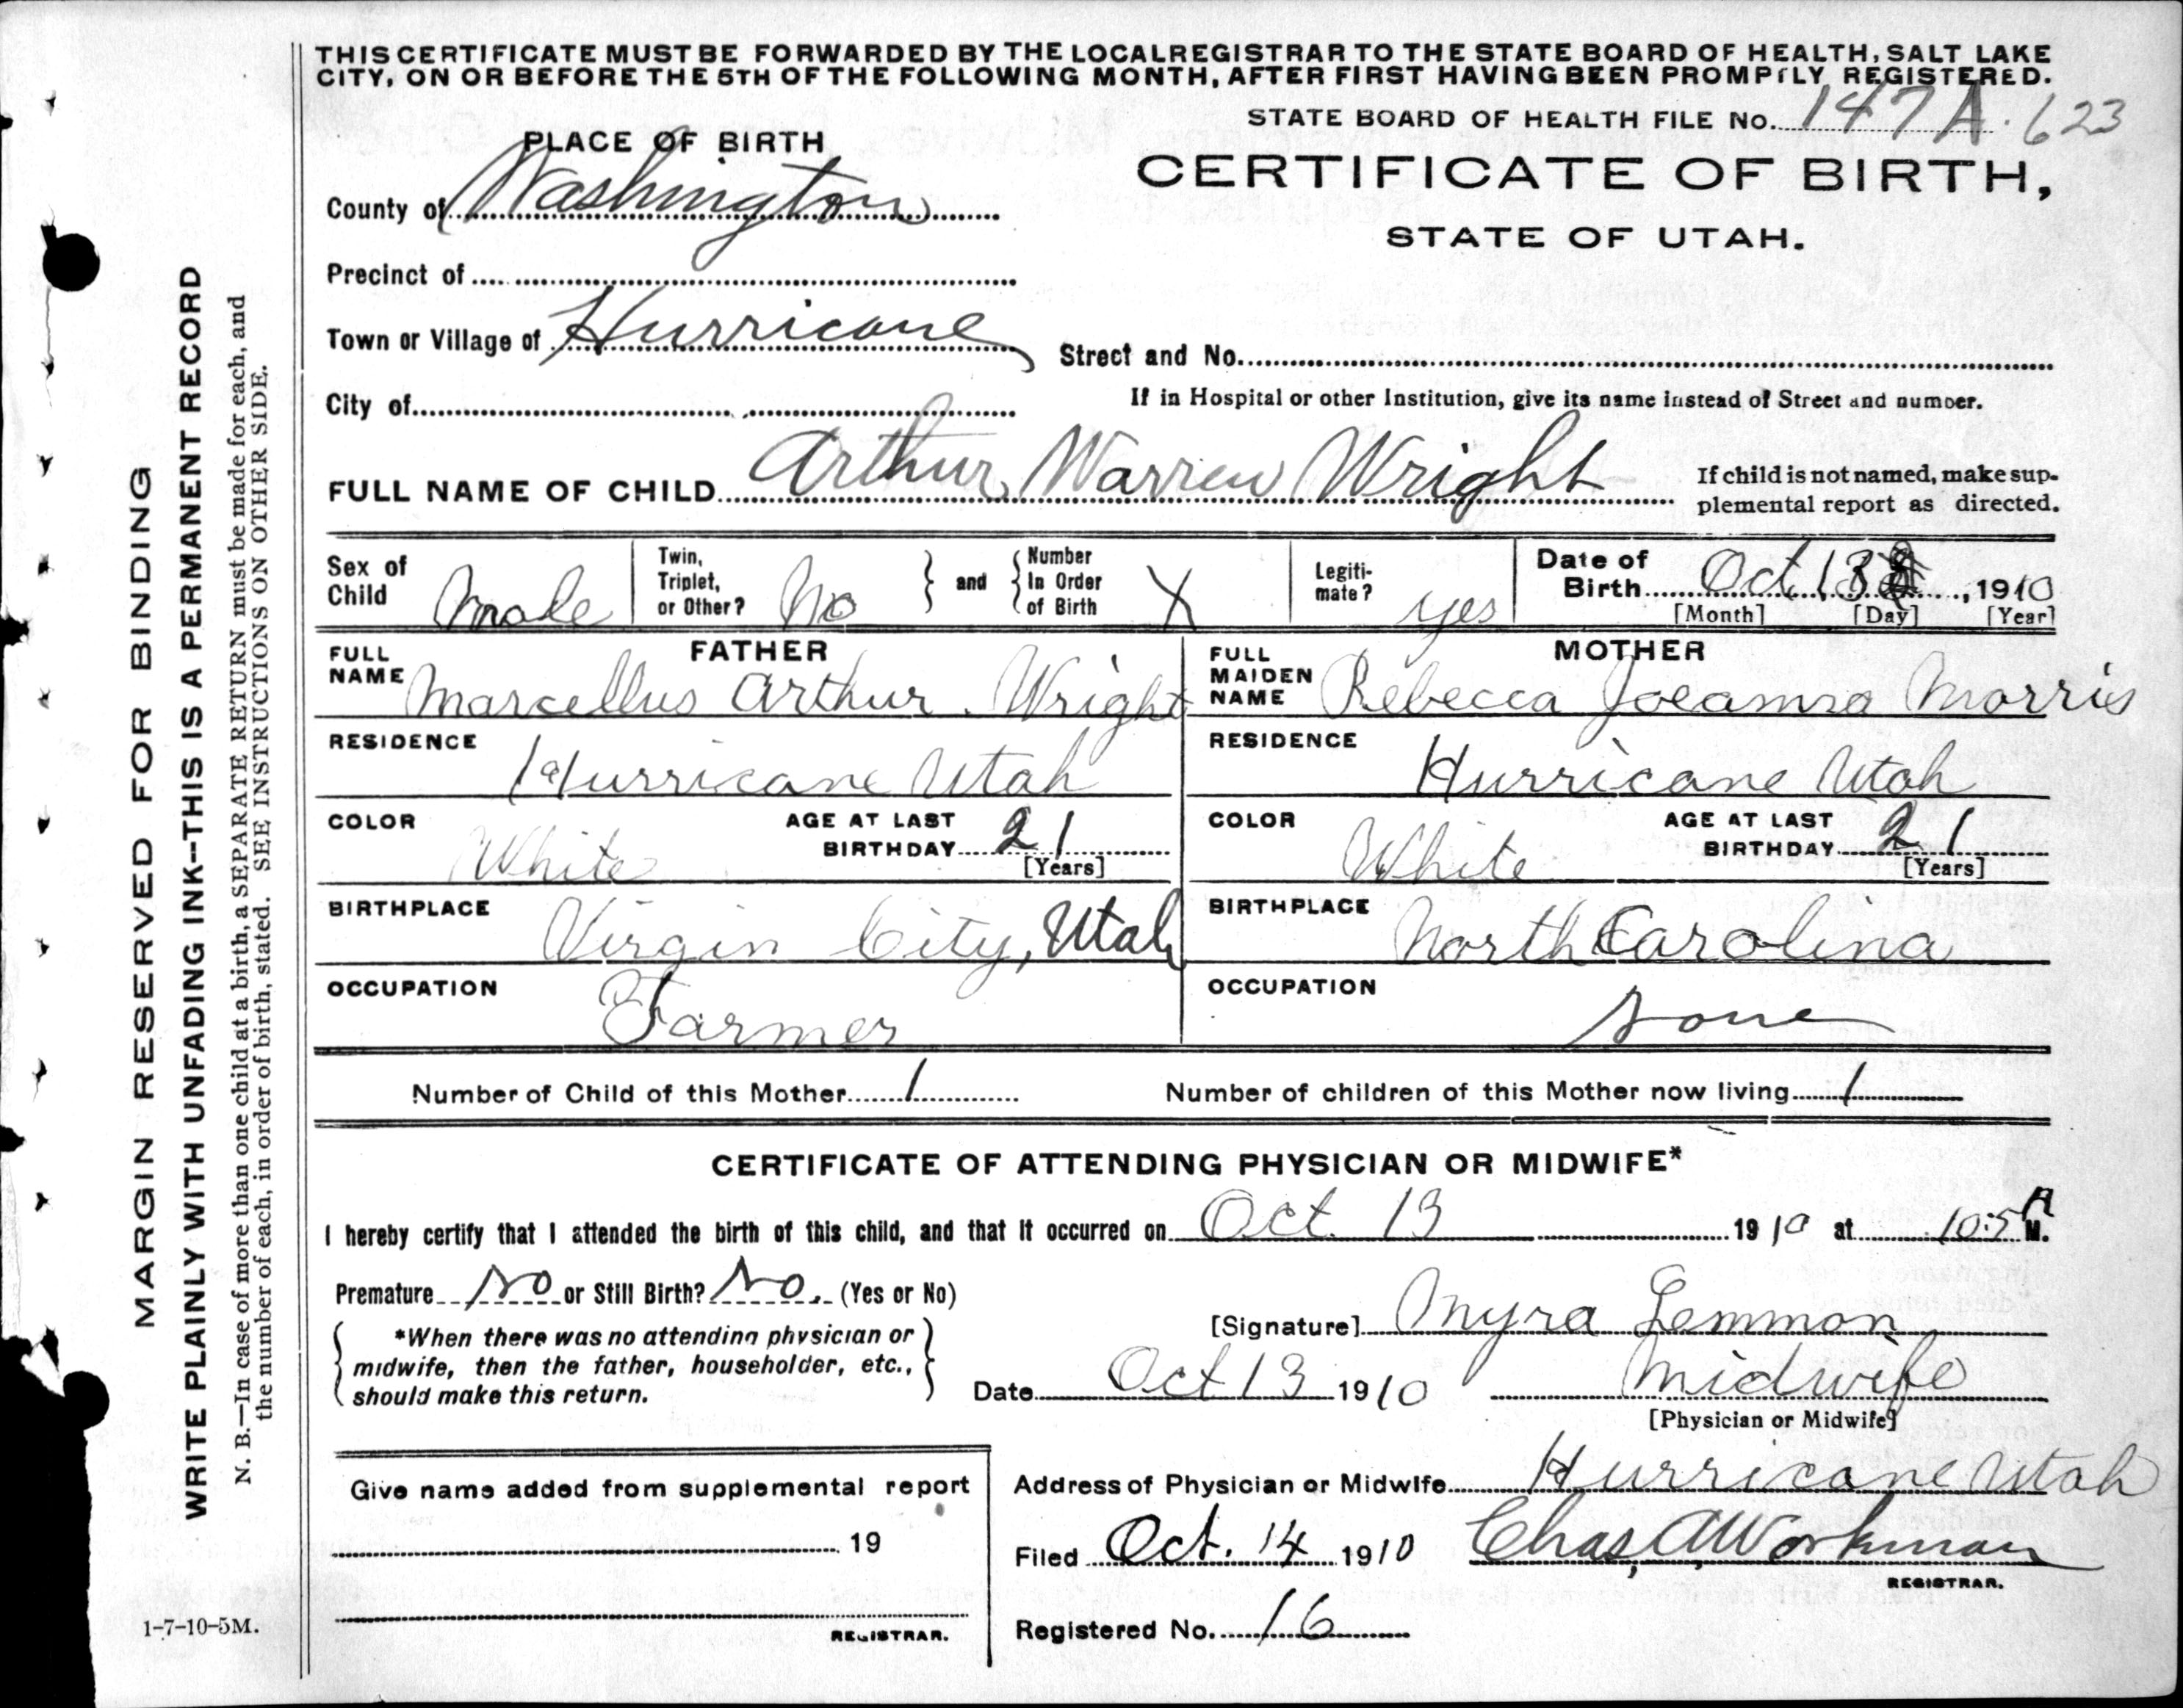 THIS CERTIFICATE MUST BE FORWARDED BY THE LOCAL REGISTRAR TO THE STATE BOARD OF HEALTH, SALT LAKE
CITY, ON OR BEFORE THE 5TH OF THE FOLLOWING MONTH, AFTER FIRST HAVING BEEN PROMPTLY REGISTERED.
STATE BOARD OF HEALTH FILE No. 147A. 623
PLACE OF BIRTH
CERTIFICATE OF BIRTH,
STATE OF UTAH.
County of Washington
Precinct of
Town or Village of Hurricane
Street and No.
City of
If in Hospital or other Institution, give its name instead of Street and number.
FULL NAME OF CHILD Arthur Warren Wright
If child is not named, make sup-
plemental report as directed.
Sex of Child Male
Twin, Triplet, or Other? No
and
Number In Order of Birth X
Legiti-mate? yes
Date of Birth Oct 13, 1910
[Month] [Day] [Year]
FATHER
FULL NAME Marcellus Arthur Wright
RESIDENCE Hurricane Utah
COLOR White
AGE AT LAST BIRTHDAY 21
[Years]
BIRTHPLACE Virgin City, Utah
OCCUPATION Farmer
MOTHER
FULL MAIDEN NAME Rebecca Morris
RESIDENCE Hurricane Utah
COLOR White
AGE AT LAST BIRTHDAY 21
[Years]
BIRTHPLACE North Carolina
OCCUPATION None
Number of Child of this Mother 1
Number of children of this Mother now living 1
CERTIFICATE OF ATTENDING PHYSICIAN OR MIDWIFE*
I hereby certify that I attended the birth of this child, and that it occurred on Oct. 13 1910 at 10:5 A M.
Premature No or Still Birth? No. (Yes or No)
*When there was no attending physician or
midwife, then the father, householder, etc.,
should make this return.
[Signature] Myra Lemmon
Date Oct 13 1910
Midwife
[Physician or Midwife]
Give name added from supplemental report
19
REGISTRAR.
Address of Physician or Midwife Hurricane Utah
Filed Oct. 14 1910 Chas. A Workman
REGISTRAR.
Registered No. 16
1-7-10-5M.
MARGIN RESERVED FOR BINDING
WRITE PLAINLY WITH UNFADING INK--THIS IS A PERMANENT RECORD
N. B.—In case of more than one child at a birth, a SEPARATE RETURN must be made for each, and
the number of each, in order of birth, stated. SEE INSTRUCTIONS ON OTHER SIDE.